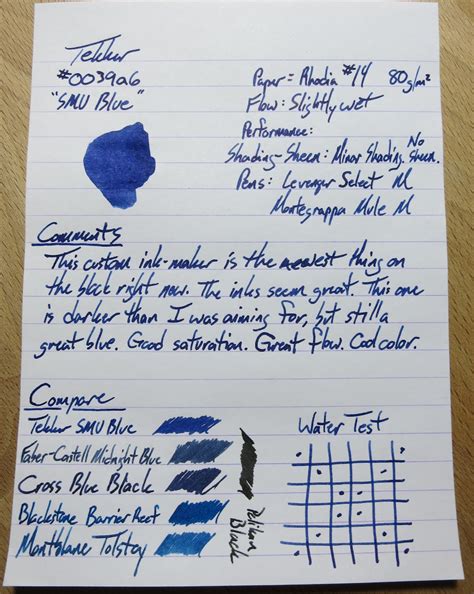 Tekker
#0039a6
"SMU Blue"
Paper = Rhodia #14 80g/m²
Flow: Slightly wet
Performance:
Shading-Sheen: Minor Shading. No Sheen.
Pens: Levenger Select M
Montegrappa Mule M
Comments
This custom ink-maker is the newest thing on
the block right now. The inks seem great. This one
is darker than I was aiming for, but still a
great blue. Good saturation. Great flow. Cool color.
Compare
Tekker SMU Blue
Faber-Castell Midnight Blue
Cross Blue Black
Blackstone Barrier Reef
Montblanc Tolstoy
Pelikan Black
Water Test